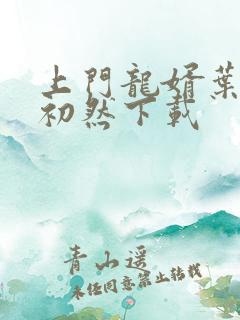 上門龍婿葉
初然下載
青山遥
未经同意禁止转载